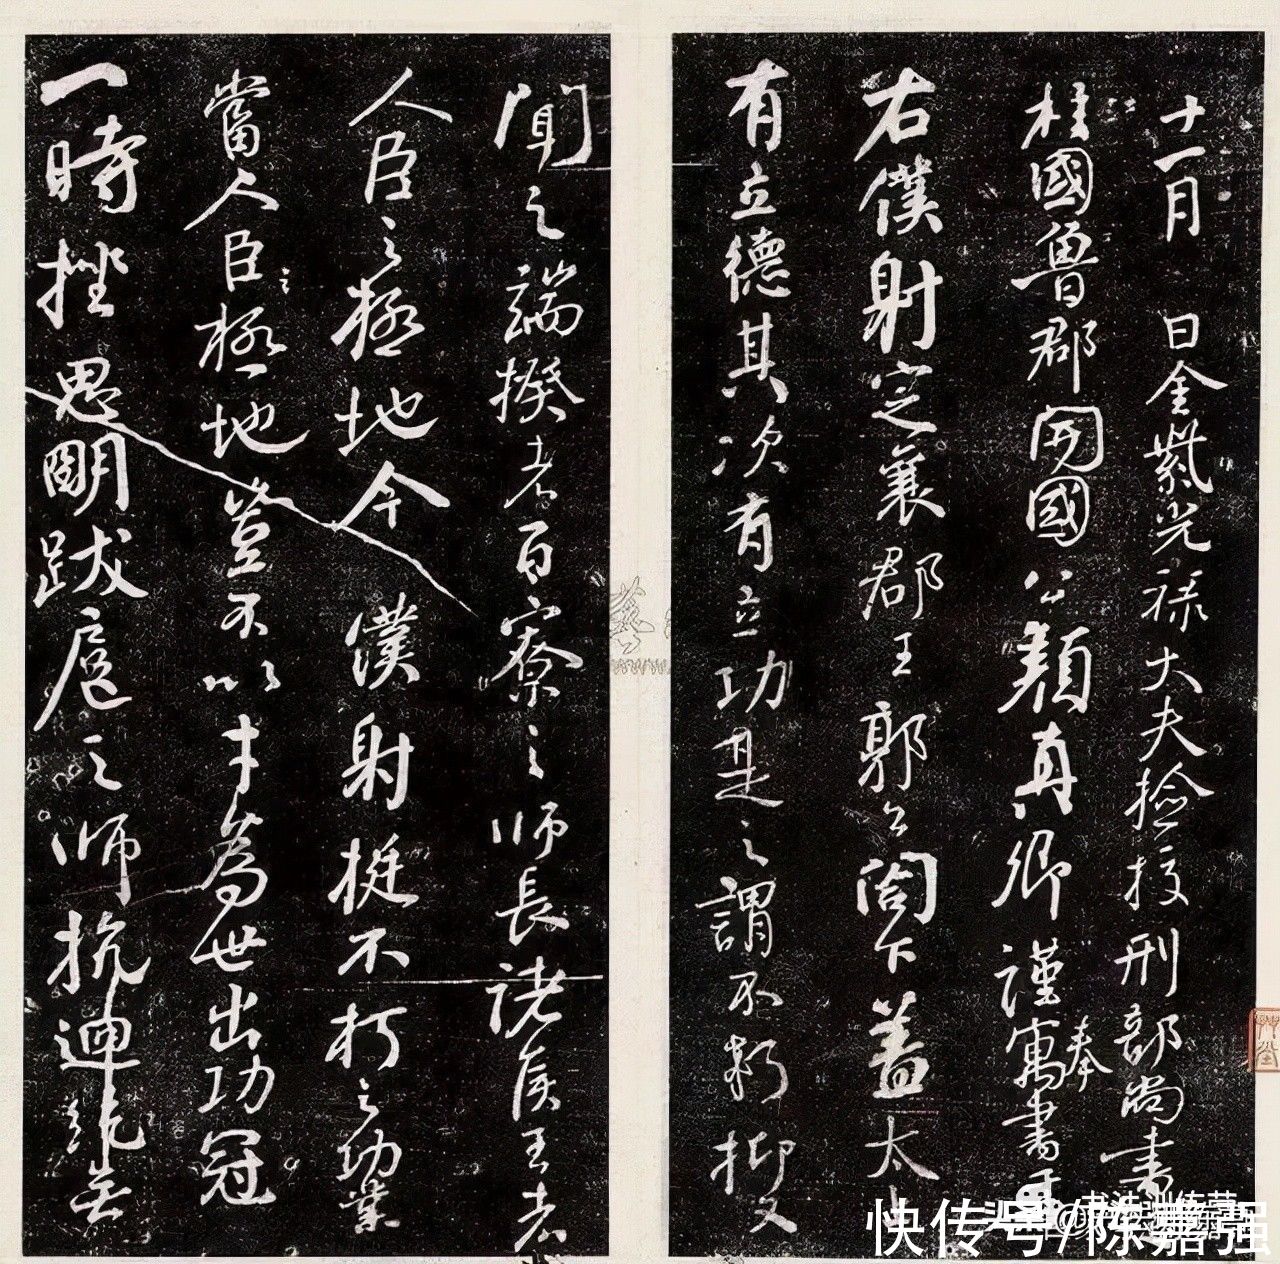 十一月 日金紫光祿大夫撿挍刑部尚書
柱國魯郡開國公顏真卿謹奉寓書于
右僕射定襄郡王郭公閤下蓋太上
有立德其次有立功是之謂不朽抑又
聞之端揆者百寮之師長諸侯王者
人臣之極地今僕射挺不朽之功業
當人臣極地豈不以才為世出功冠
一時挫思明跋扈之師抗迴紇無
快传号/陈嘉强